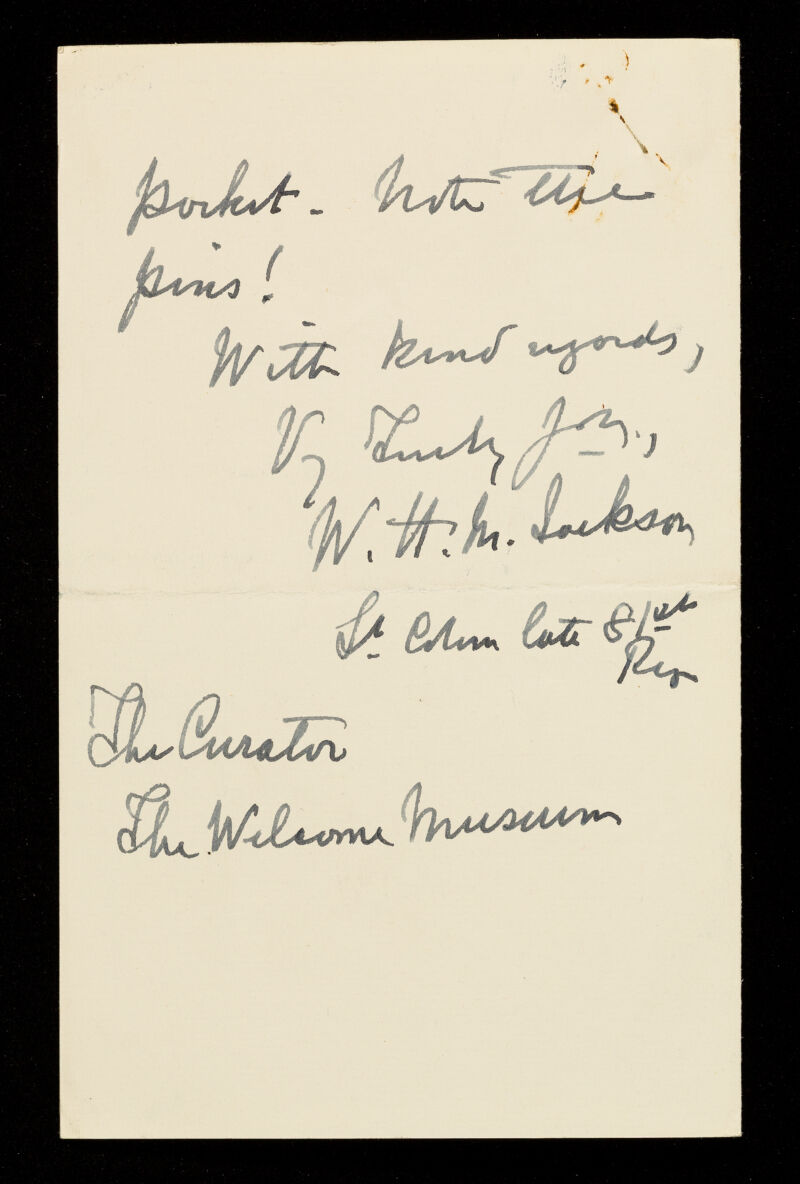 pocket. Note the
pins!
With kind regards,
Vy Truly Yrs.,
W. H. M. Jackson
Lt Colon late 81st
Reg
The Curator
The Welcome Museum